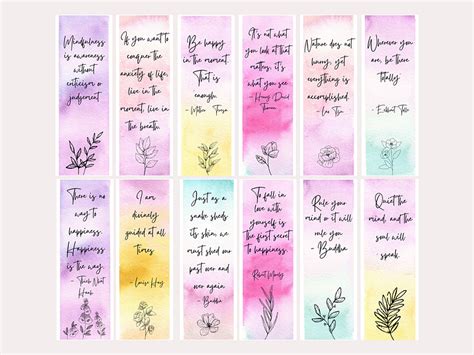 Mindfulness
is awareness
without
criticism or
judgement
If you want to
conquer the
anxiety of life,
live in the
moment, live in
the breath.
Be happy
in the moment.
That is
enough.
- Mother Teresa
It's not what
you look at that
matters, it's
what you see
- Henry David
Thoreau
Nature does not
hurry, yet
everything is
accomplished.
- Lao Tzu
Wherever you
are, be there
totally
- Eckhart Tolle
There is no
way to
happiness.
Happiness
is the way.
- Thich Nhat
Hanh
I am
divinely
guided at all
times
- Louise Hay
Just as a
snake sheds
its skin, we
must shed our
past over and
over again.
- Buddha
To fall in
love with
yourself is the
first secret to
happiness.
Robert Morley
Rule your
mind or it will
rule you
- Buddha
Quiet the
mind, and the
soul will
speak.